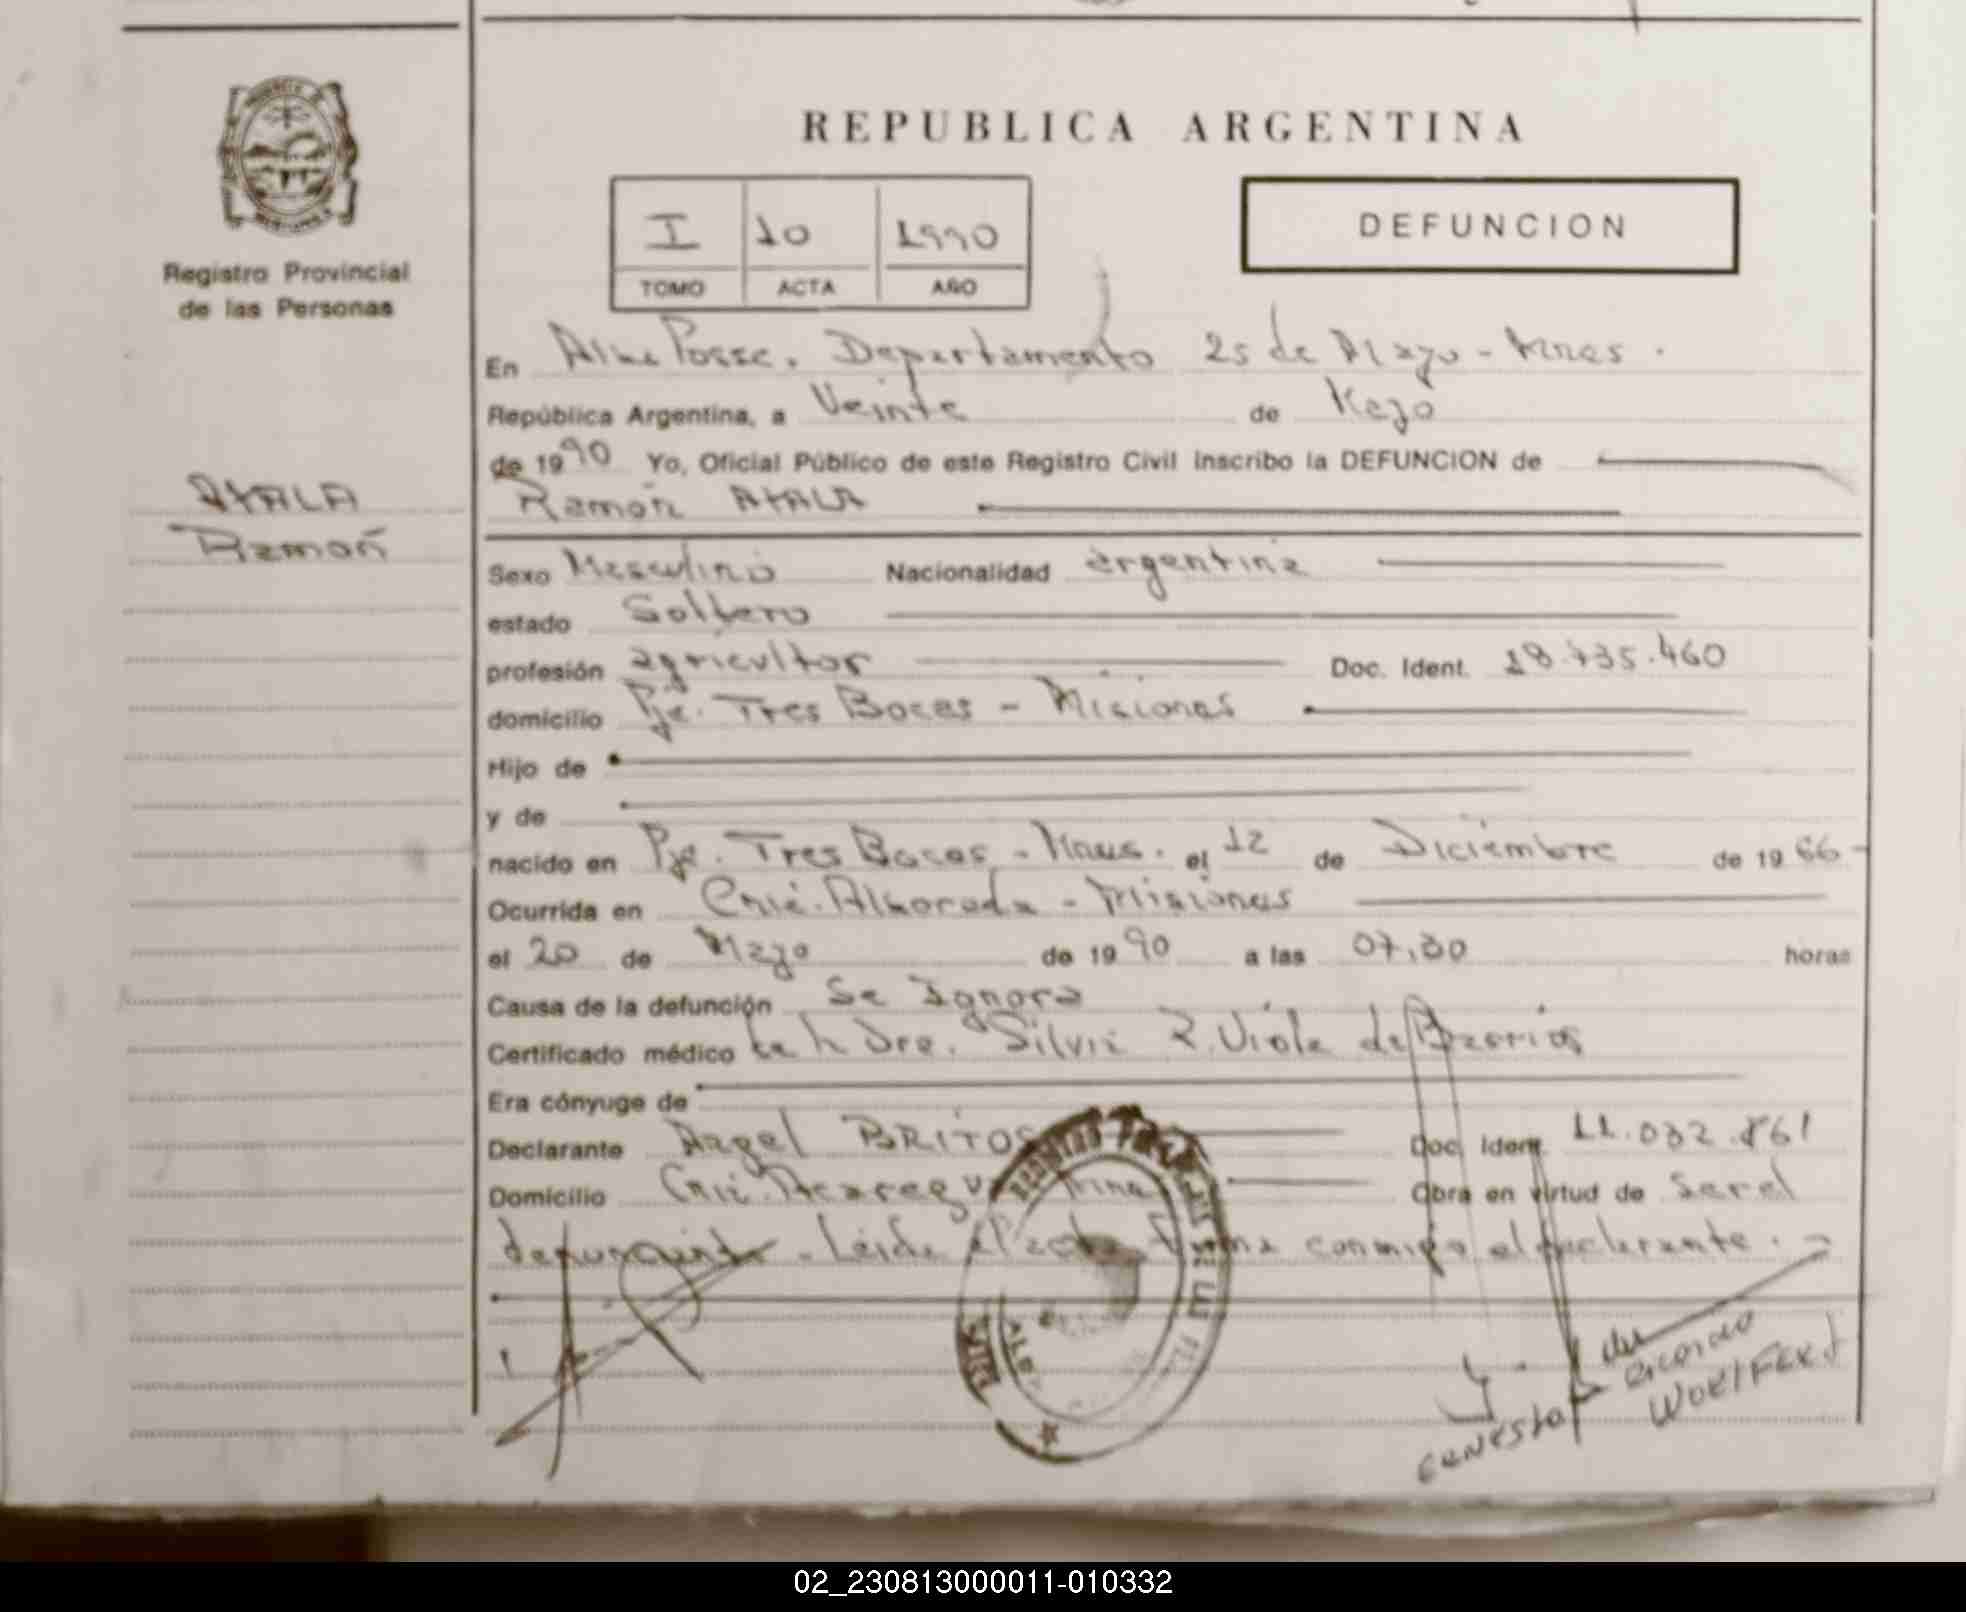 REPUBLICA ARGENTINA
I 10 1990
TOMO ACTA AÑO
DEFUNCION
Registro Provincial
de las Personas
AYALA
Ramón
En Alba Posse, Departamento 25 de Mayo - Mnes.
República Argentina, a Veinte de Mayo
de 1990 Yo, Oficial Público de este Registro Civil inscribo la DEFUNCION de
Ramón AYALA
Sexo Masculino Nacionalidad argentina
estado Soltero
profesión agricultor Doc. Ident. 18.735.460
domicilio Pje. Tres Bocas - Misiones
Hijo de
y de
nacido en Pje. Tres Bocas - Mnes. el 12 de Diciembre de 1966
Ocurrida en Cnia. Alborada - Misiones
el 20 de Mayo de 1990 a las 07,30 horas
Causa de la defunción Se Ignora
Certificado médico Dra. Silvia R. Viola de Barrios
Era cónyuge de
Declarante Angel BRITOS Doc. Ident. 11.032.861
Domicilio Cnia. Obra en virtud de Ser el
denunciante - Leida el acta Firma conmigo el declarante.
Ernesto Ricardo
02_230813000011-010332